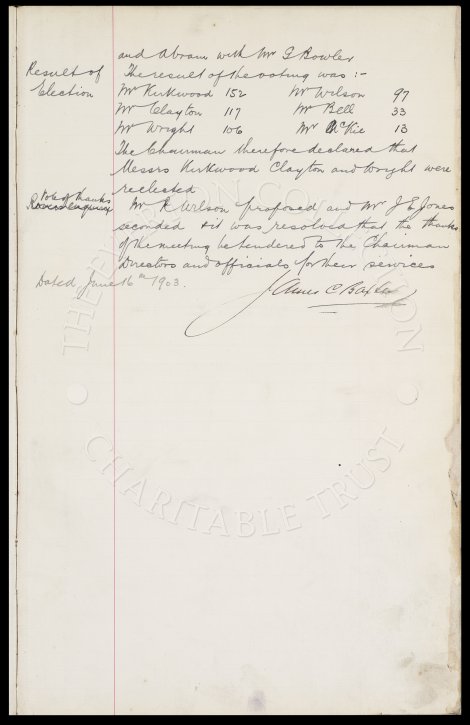 and Abram with Mr G Bowler
Result of The result of the voting was :-
Election Mr Kirkwood 152 Mr Wilson 97
Mr Clayton 117 Mr Bell 33
Mr Wright 106 Mr McKie 13
The Chairman therefore declared that
Messrs Kirkwood Clayton and Wright were
reelected
Vote of thanks
Mr R Wilson proposed and Mr J E Jones
seconded & it was resolved that the thanks
of the meeting be tendered to the Chairman
Directors and officials for their services
Dated June 16th 1903.
James C Baxter
THE EVERTON COLLECTION
CHARITABLE TRUST